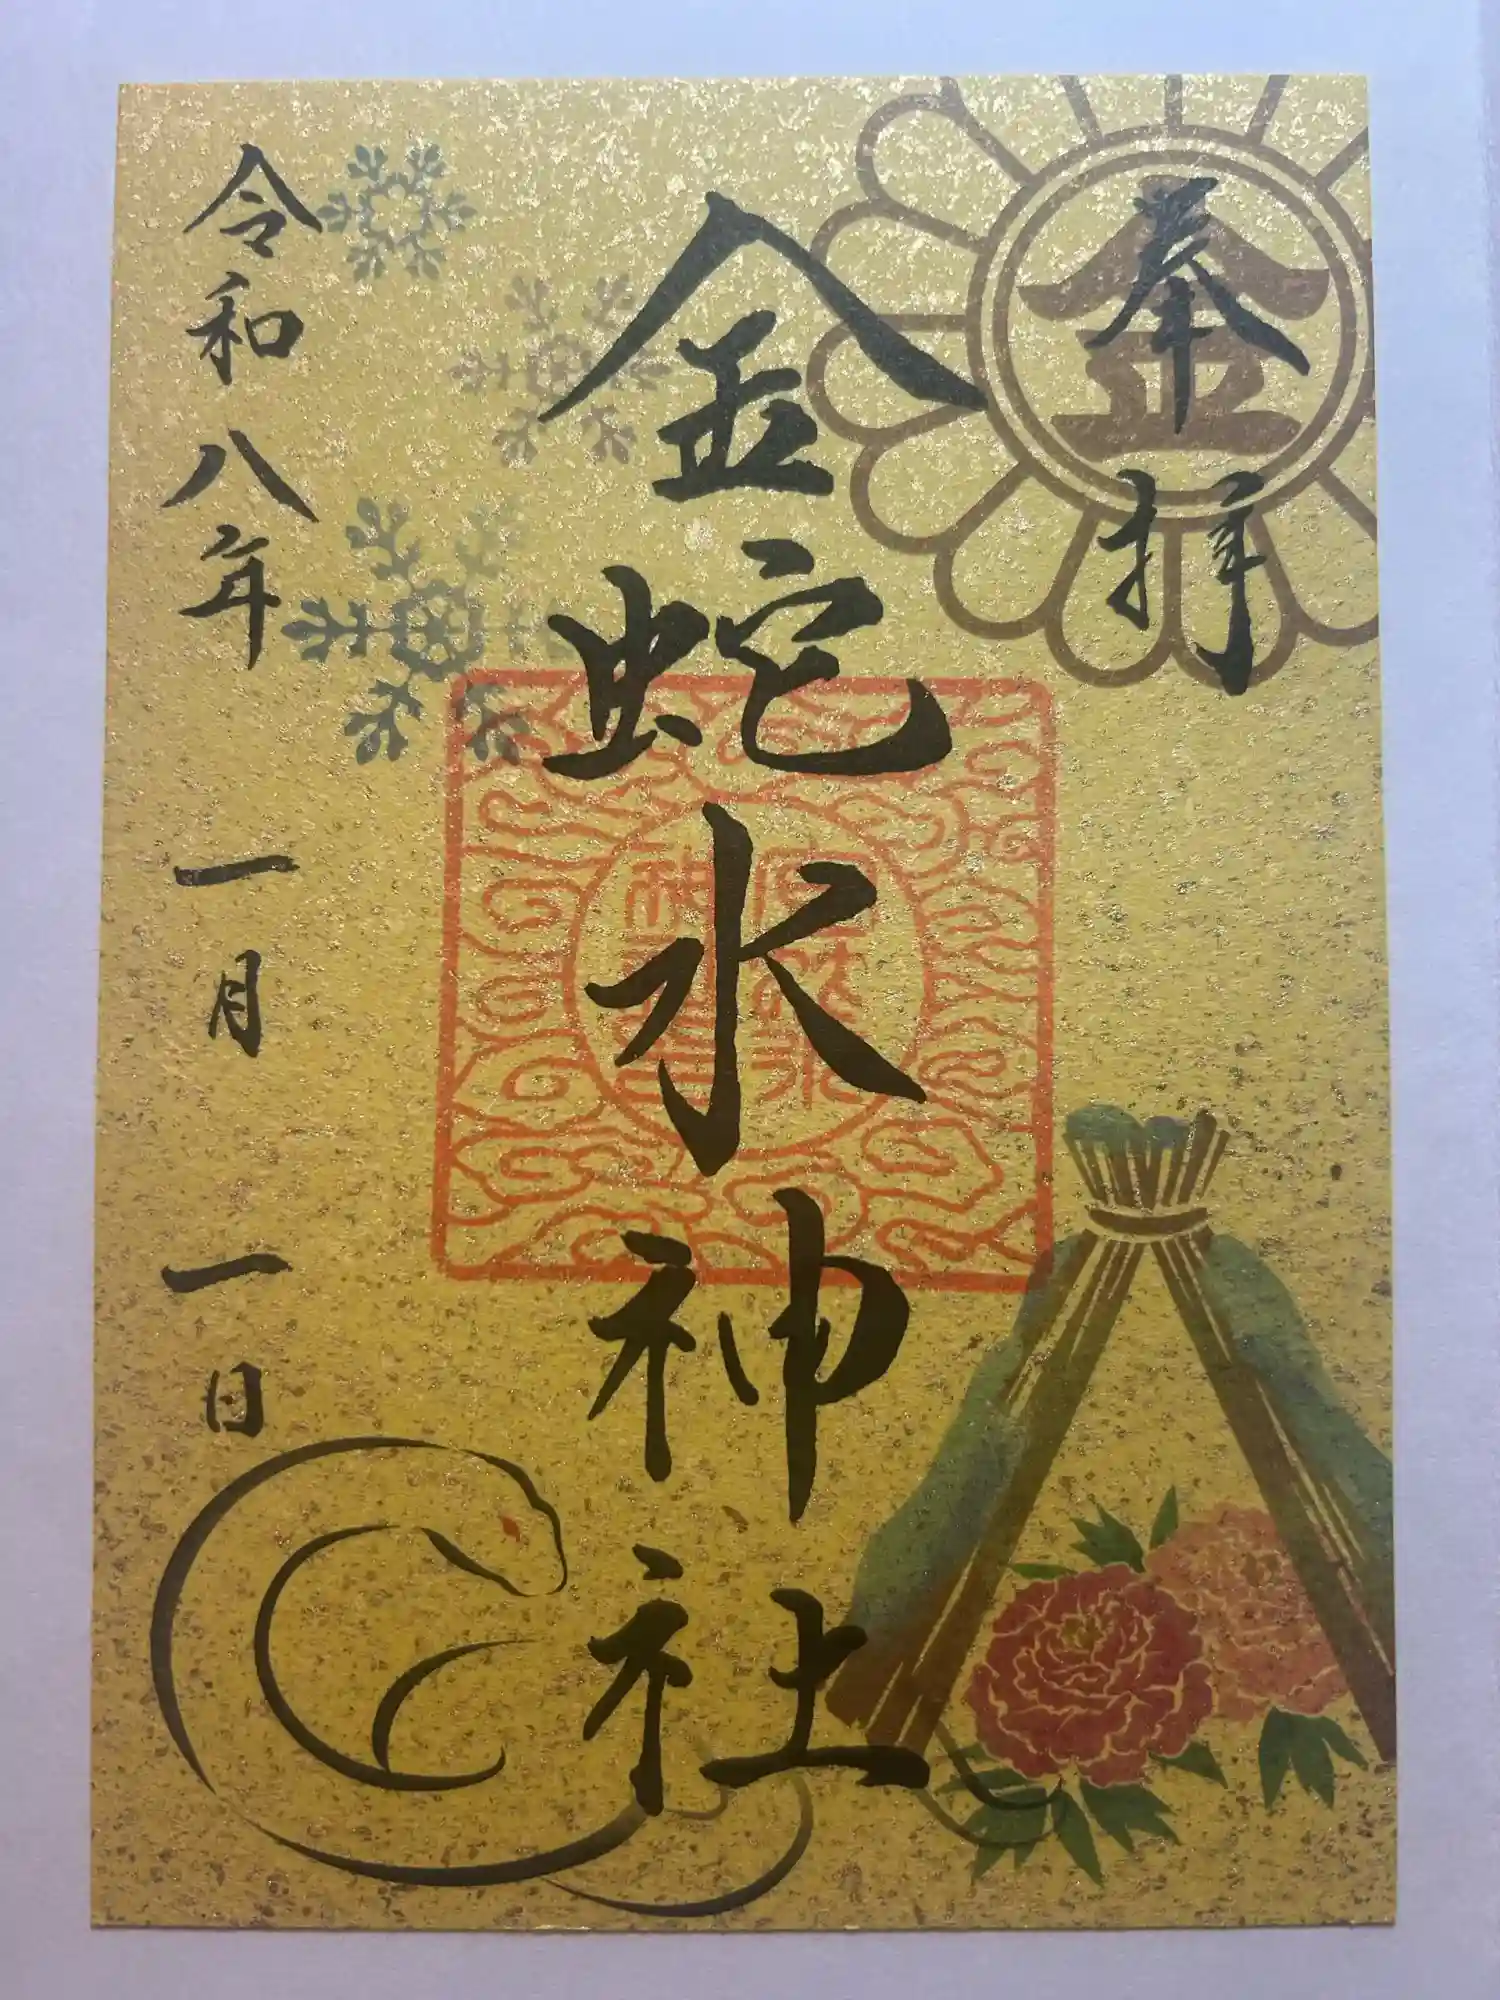 奉拝
金
金蛇水神社
令和八年 一月 一日